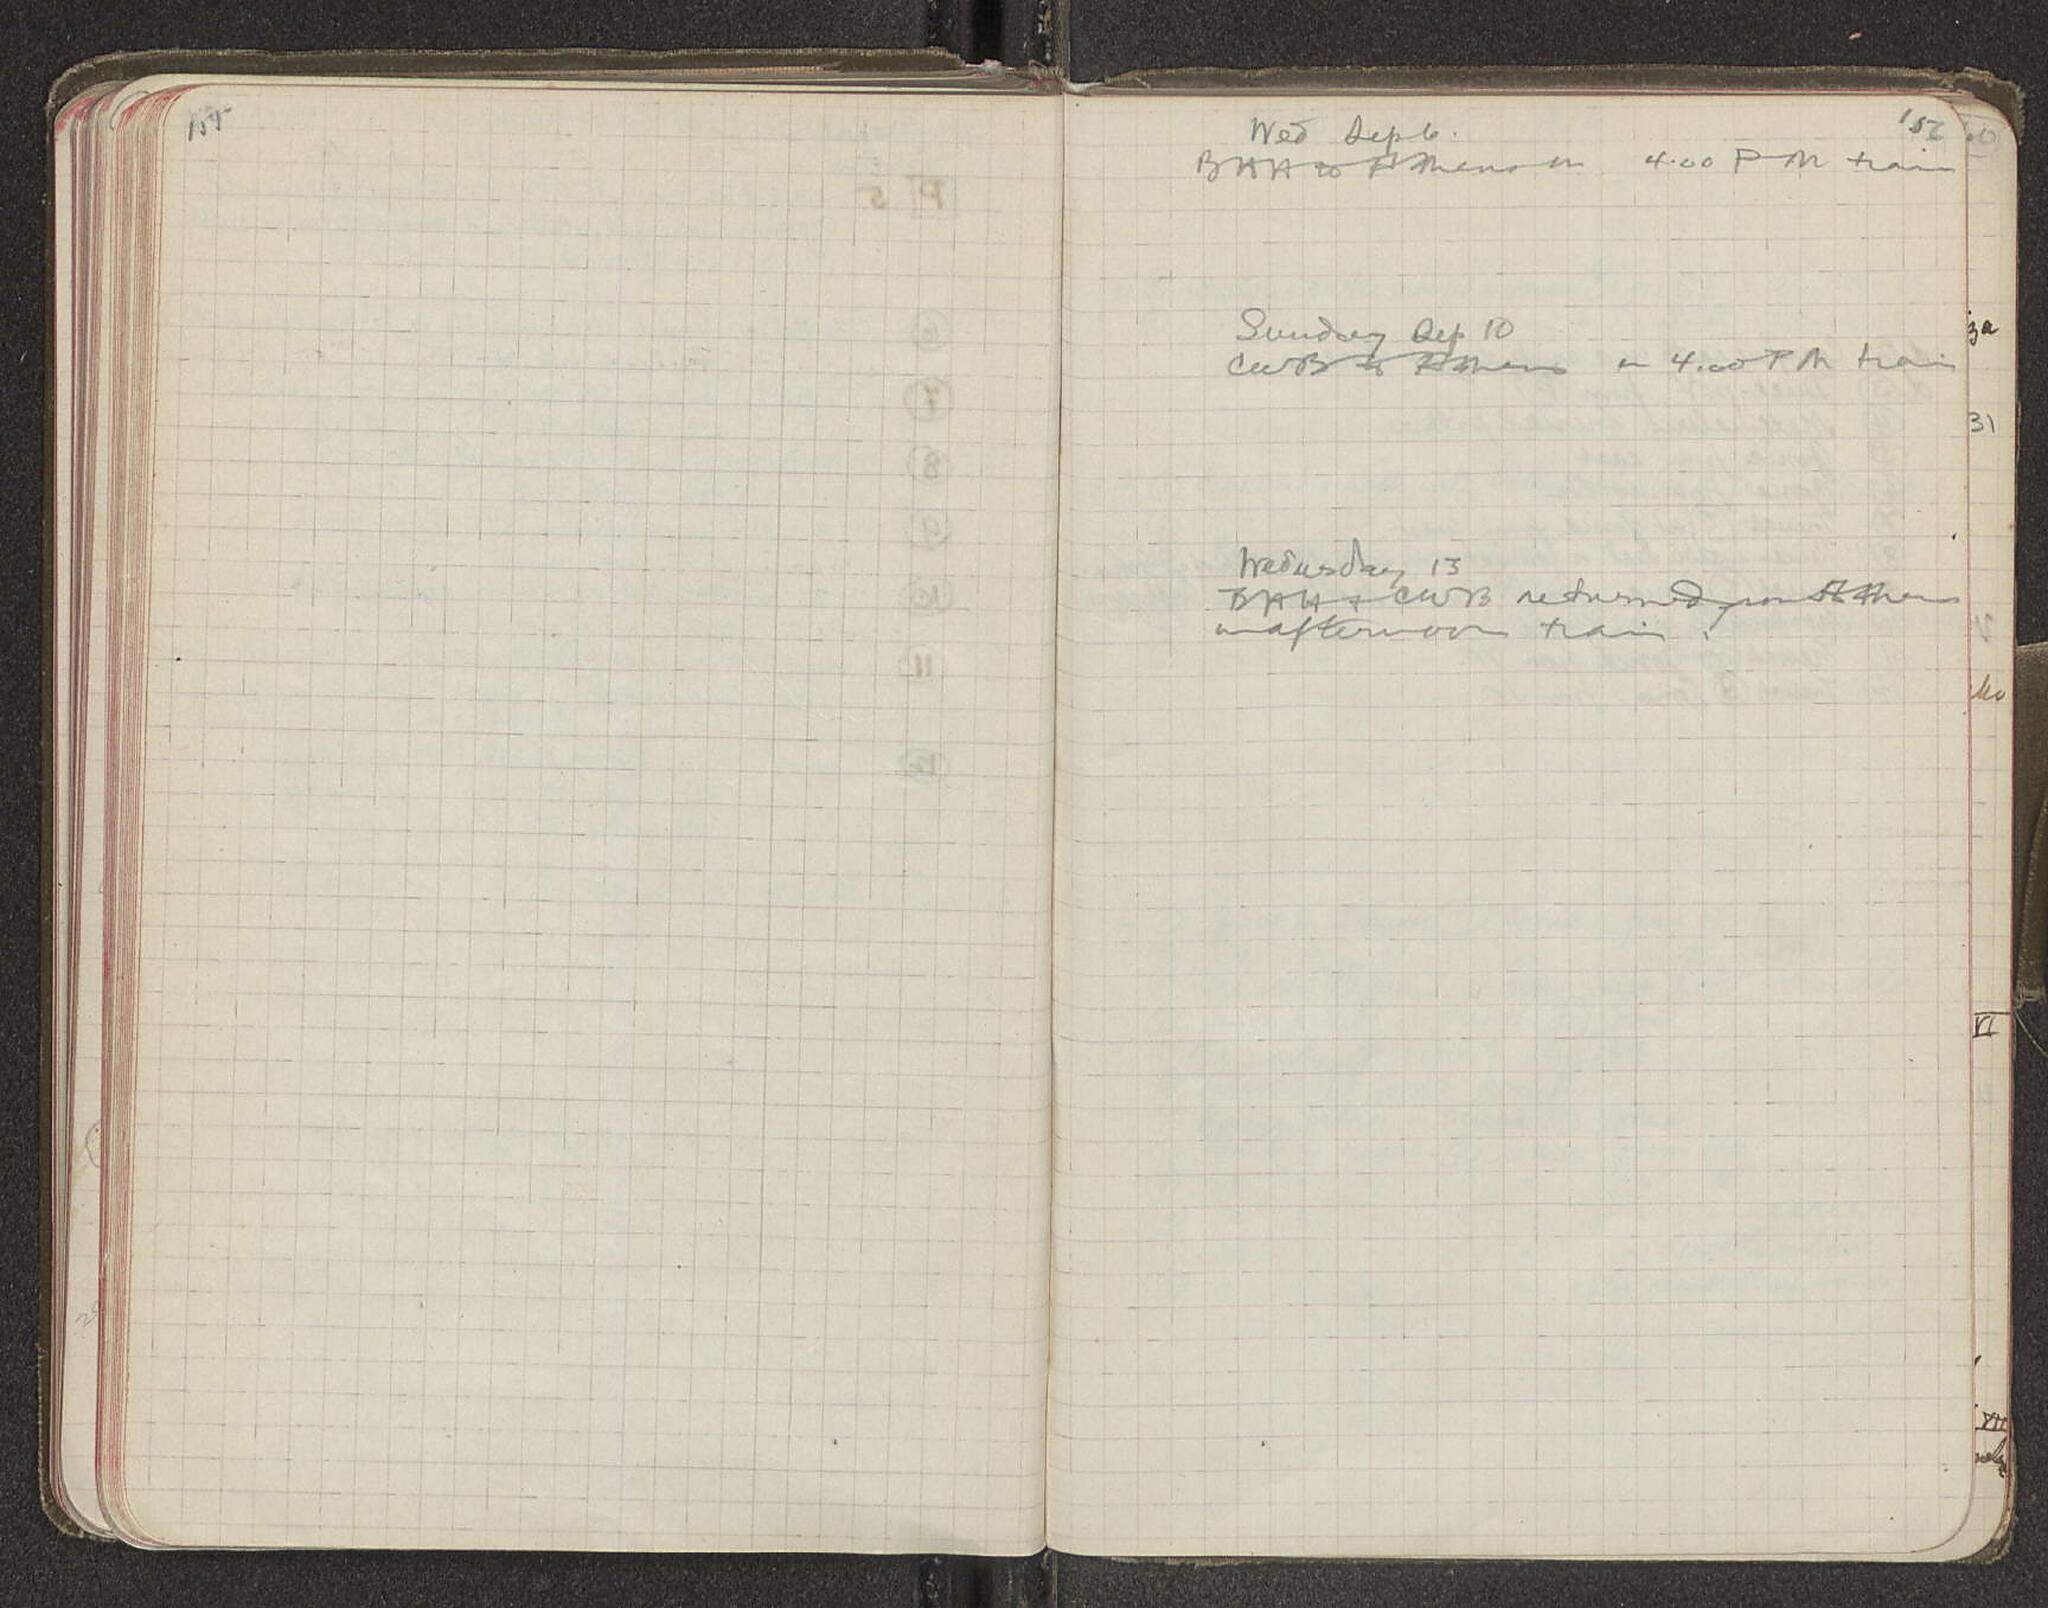 155
156
Wed Sep 6.
BHH to Athens on 4.00 PM train
Sunday Sep 10
CWB to Athens on 4.00 PM train
Wednesday 13
BHH + CWB returned from Athens
on afternoon train.
za
31
VI
VII